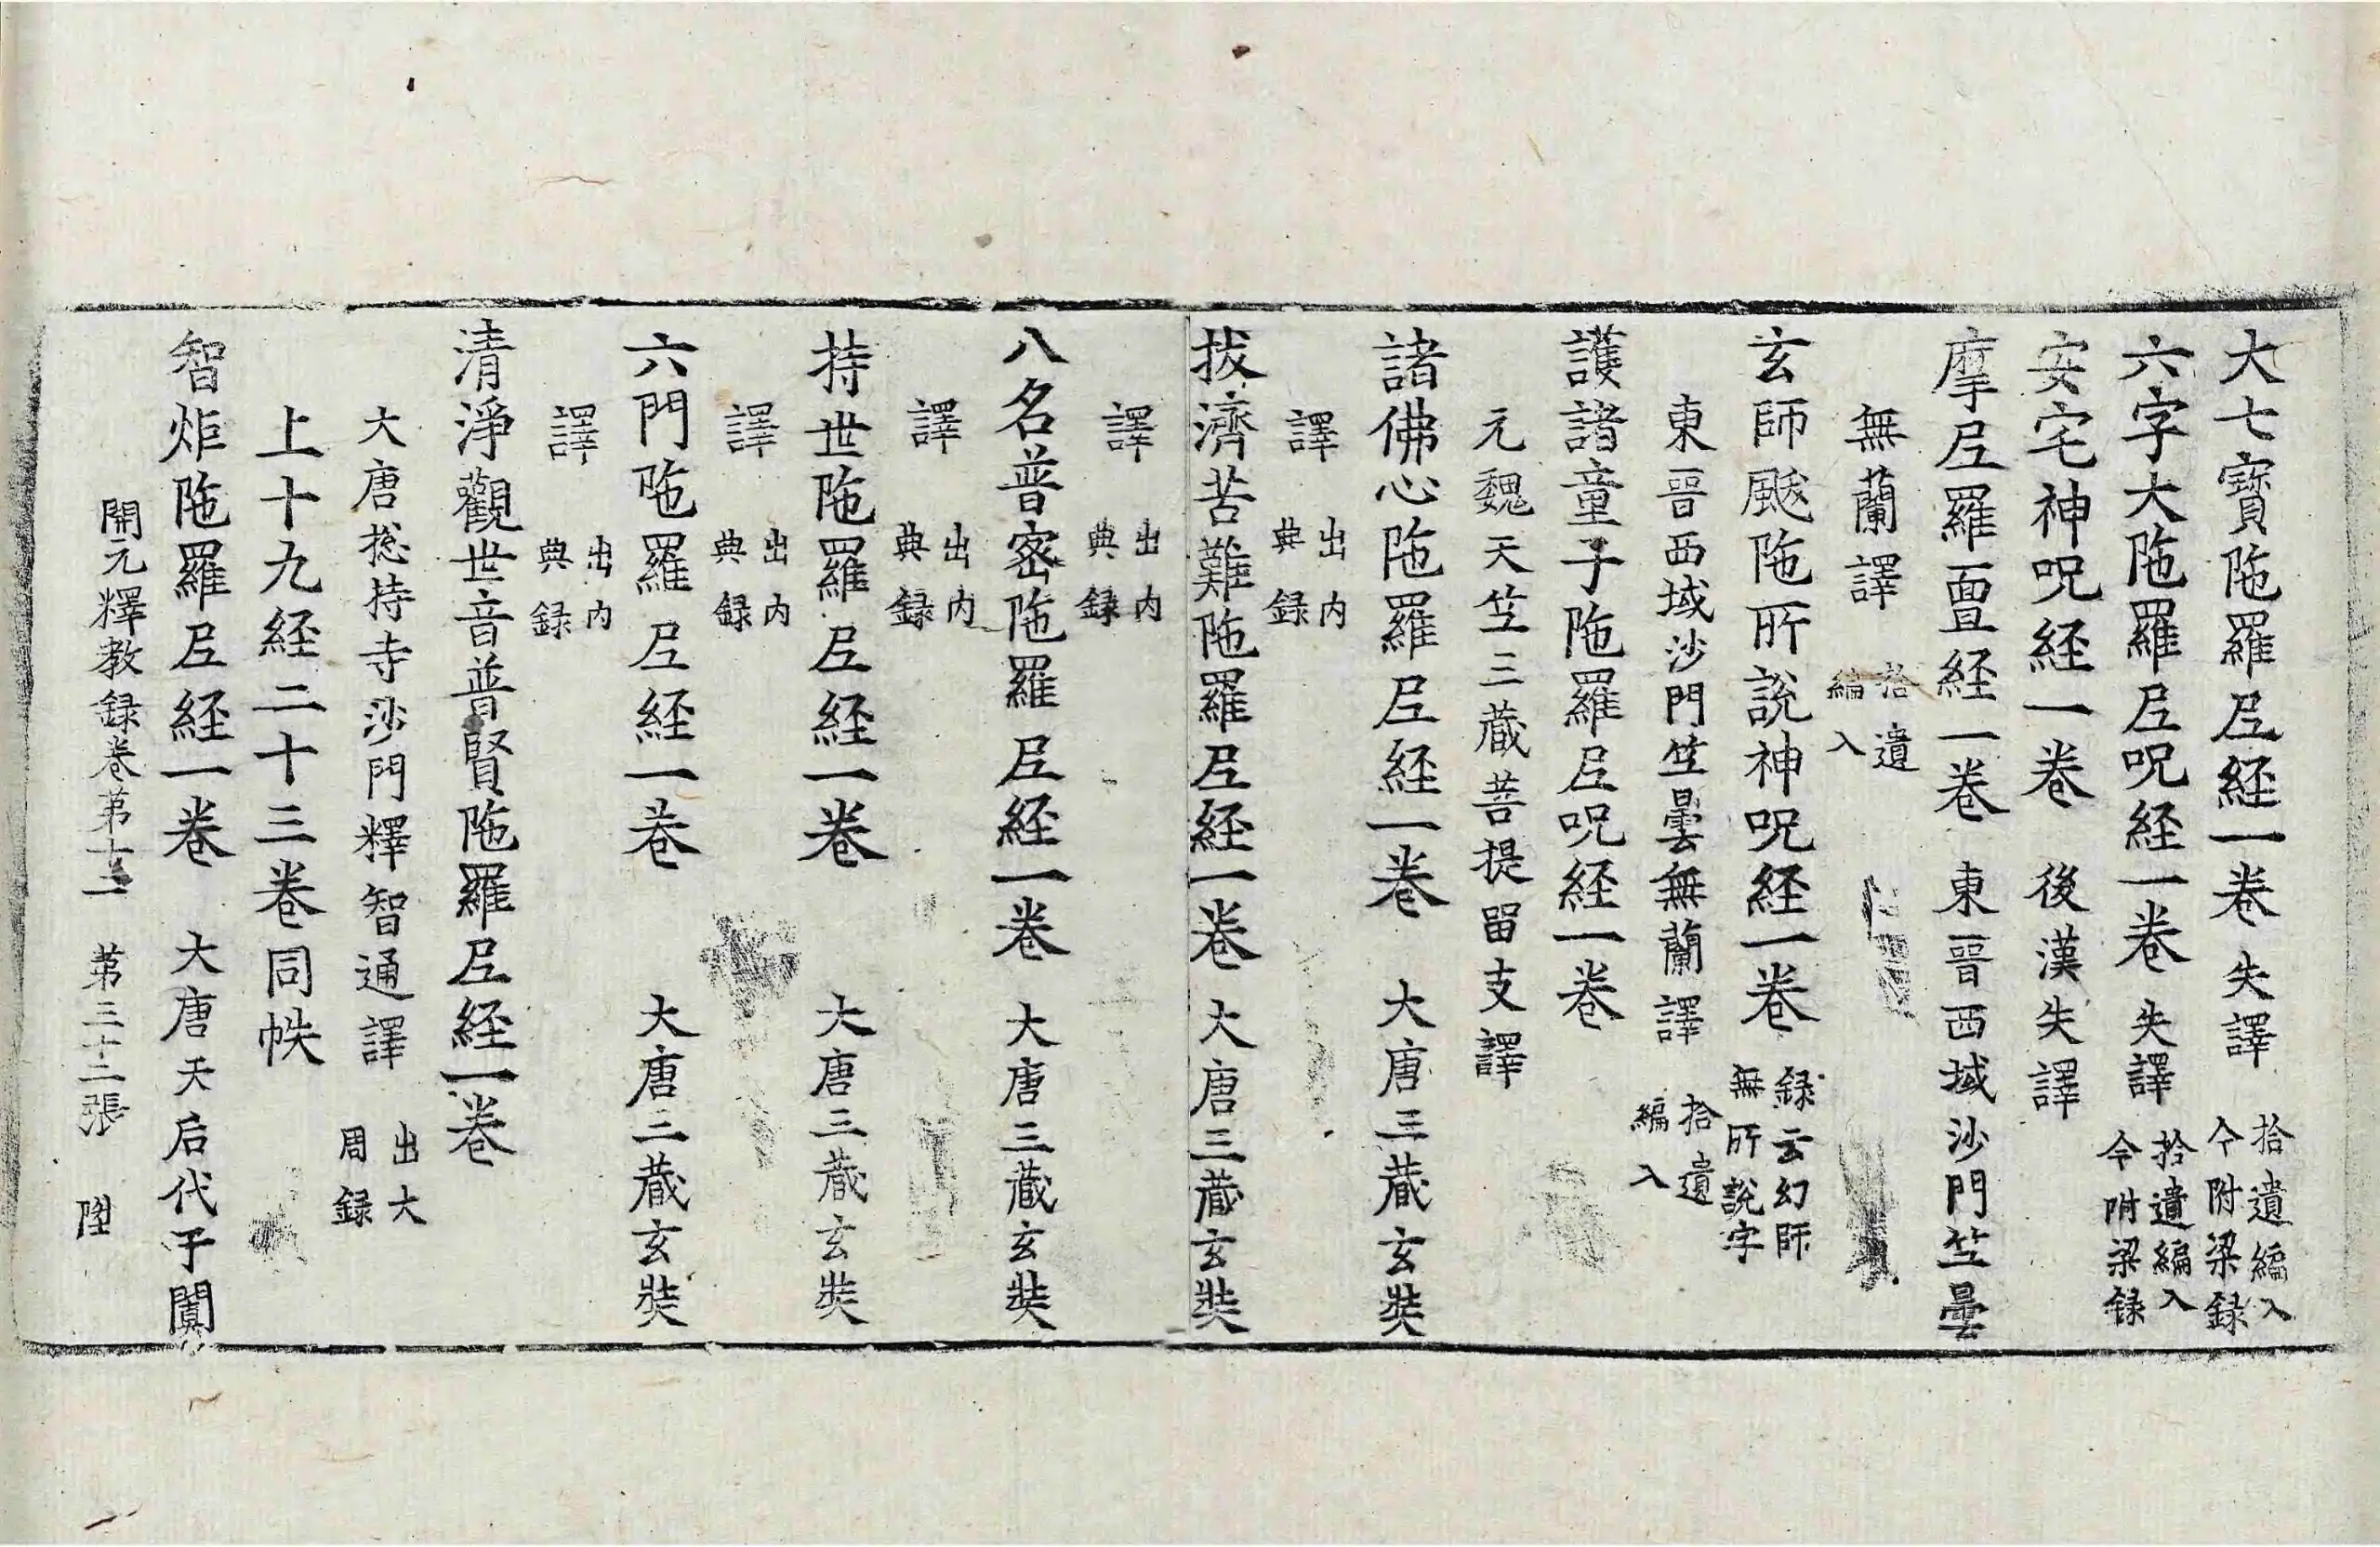 大七寶陁羅𡰱経一卷 失譯 拾遺編入今附梁録
六字大陁羅𡰱呪経一卷 失譯 拾遺編入今附梁録
安宅神呪経一卷 後漢失譯
摩𡰱羅亶経一卷 東晉西域沙門竺曇
無蘭譯 拾遺編入
玄師颰陁所說神呪経一卷 録云幻師無所說字
東晉西域沙門竺曇無蘭譯 拾遺編入
護諸童子陁羅𡰱呪経一卷
元魏天竺三蔵菩提留支譯
諸佛心陁羅𡰱経一卷 大唐三蔵玄奘
譯 出内典録
拔濟苦難陁羅𡰱経一卷 大唐三蔵玄奘
譯 出内典録
八名普密陁羅𡰱経一卷 大唐三蔵玄奘
譯 出内典録
持世陁羅𡰱経一卷 大唐三蔵玄奘
譯 出内典録
六門陁羅𡰱経一卷 大唐三蔵玄奘
譯 出内典録
清淨觀世音普賢陁羅𡰱経一卷
大唐捴持寺沙門釋智通譯 出大周録
上十九経二十三卷同帙
智炬陁羅𡰱経一卷 大唐天后代于闐
開元釋教録卷第十二 第三十二張 陞